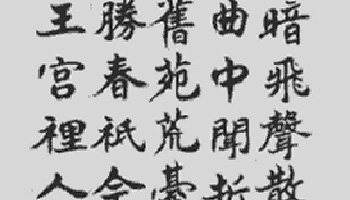 暗飛聲散
曲中聞折
舊苑荒臺
勝春祇今
王宮裡人